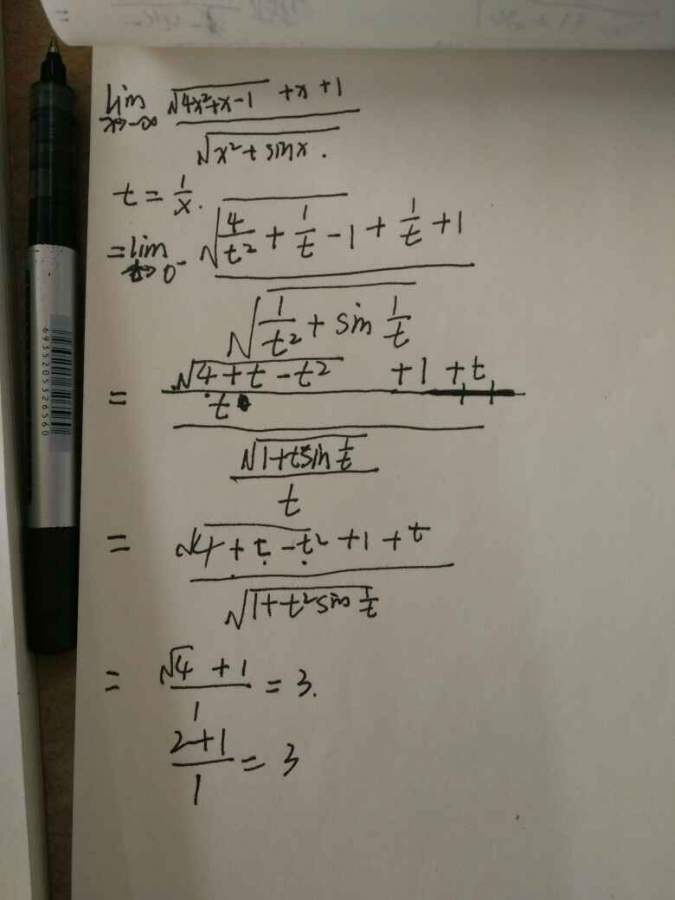 lim x→-∞ (√(4x²+x-1) +x+1)/√(x²+sinx).
t = 1/x.
= lim t→0⁻ (√(4/t² + 1/t - 1) + 1/t + 1)/√(1/t² + sin 1/t)
= ((√(4+t-t²) +1+t)/t)/(√(1+t²sin 1/t)/t)
= (√(4+t-t²) +1+t)/√(1+t²sin 1/t)
= (√4 +1)/1 = 3.
(2+1)/1 = 3
6935205326560